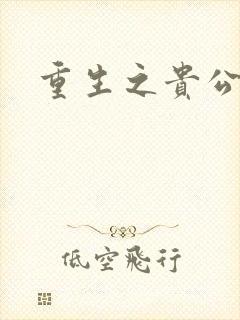 重生之貴公
低空飛行